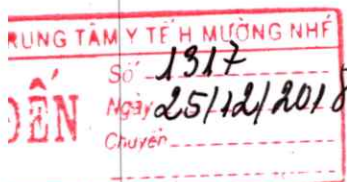 RUNG TÂM Y TẾ H MƯỜNG NHÉ
ĐẾN
Số 1317
Ngày 25/12/2018
Chuyển